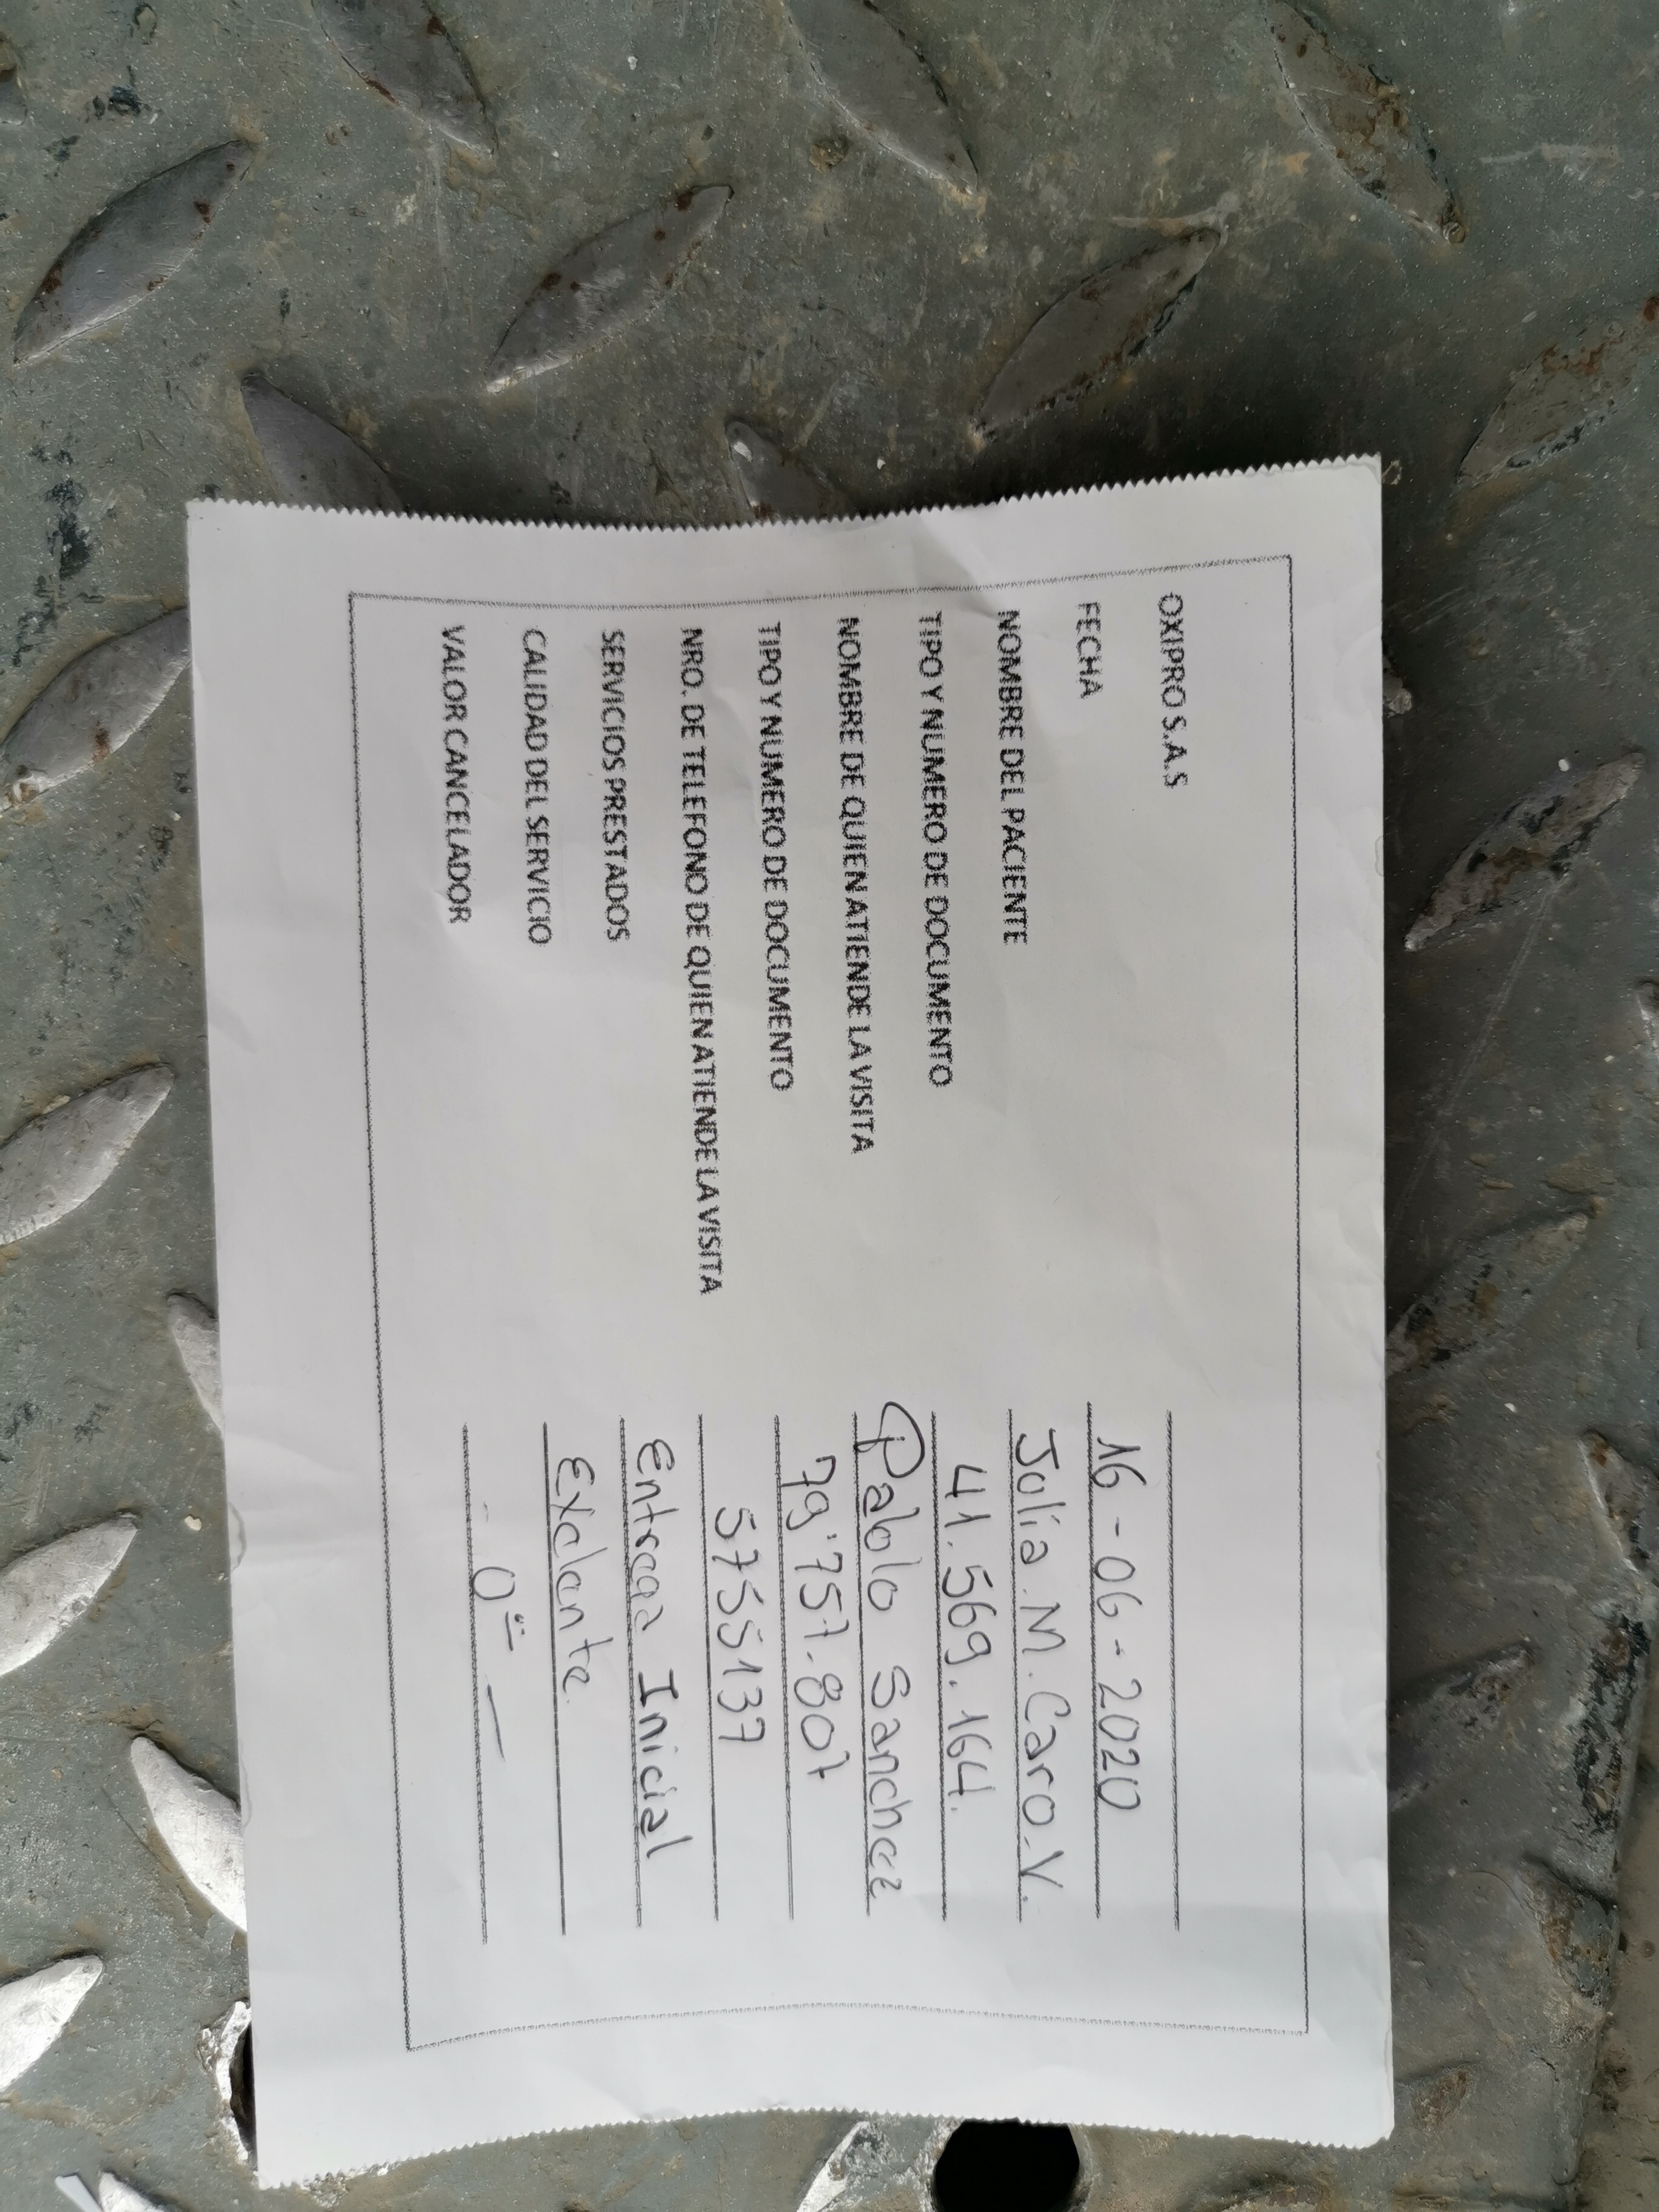 OXIPRO S.A.S
FECHA 16-06-2020
NOMBRE DEL PACIENTE Julia.M.Caro.V.
TIPO Y NUMERO DE DOCUMENTO 41.569.164.
NOMBRE DE QUIEN ATIENDE LA VISITA Pablo Sanchez
TIPO Y NUMERO DE DOCUMENTO 79.757.807
NRO. DE TELEFONO DE QUIEN ATIENDE LA VISITA 5755137
SERVICIOS PRESTADOS Entrega Inicial
CALIDAD DEL SERVICIO Exelente
VALOR CANCELADOR 0